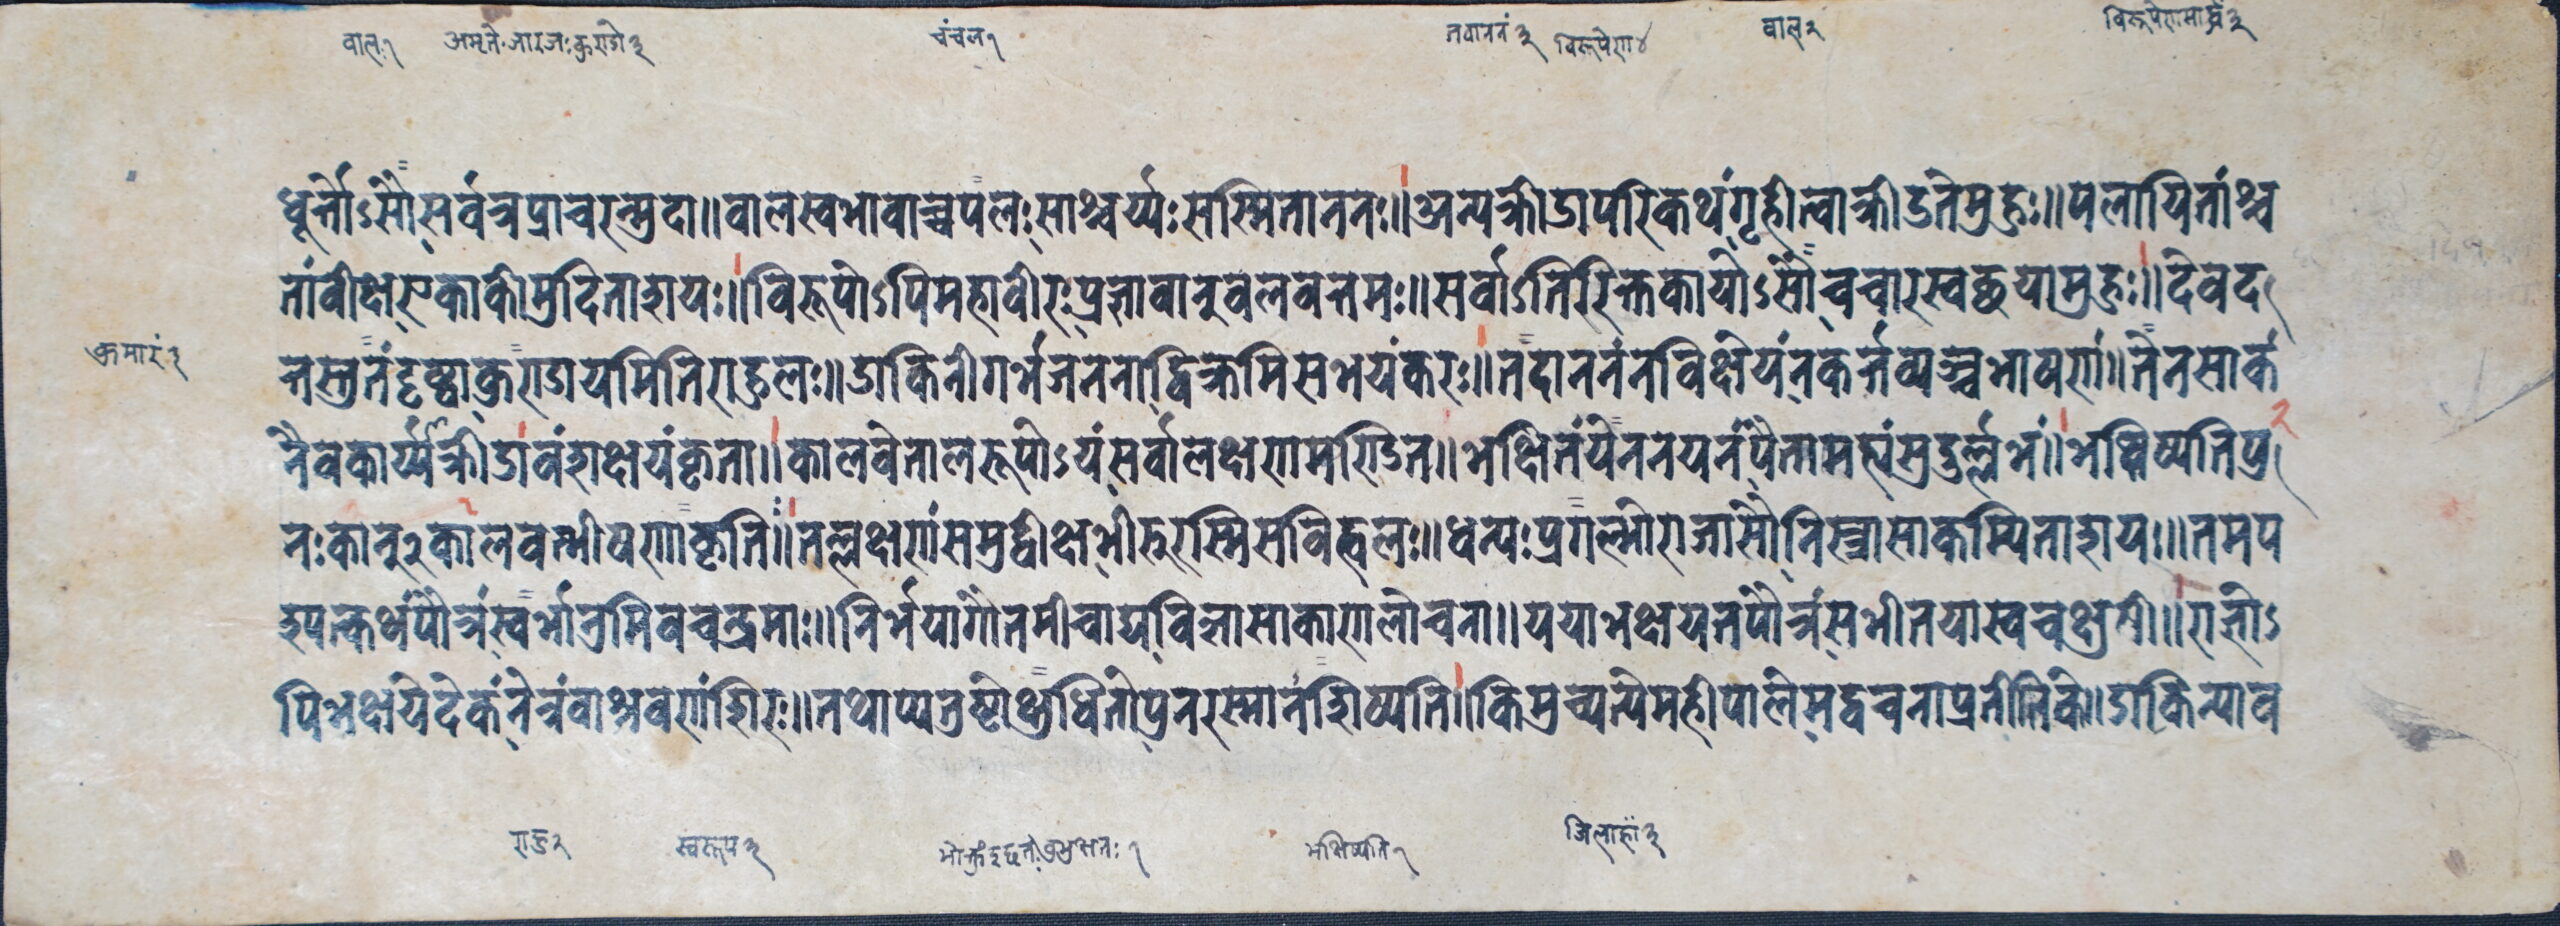 वाल१ अमृते जारजःकुराडो३ चंचल१ तवाननं३ विरूपेरा४ वाल२
धूर्त्तोऽसौसर्वत्रप्राचरन्मुदा॥वालस्वभावाच्चपलःसाश्चर्य्यःसस्मिताननः॥अन्यक्रीडापरिकथंगृहीत्वाक्रीडतेमुहुः॥पलायितांश्च
तांवीक्षएकाकीमुदिताशयः॥विरूपोऽपिमहावीरःप्रज्ञावान्वलवत्तमः॥सर्वाऽतिरिक्तकायोऽसौचचारस्वछयामुहुः॥देवद
कुमारं२
त्तस्तुतंदृष्ट्वाकुराडायमितिराहुलः॥डाकिनीगर्भजननाद्विक्रमिसभयंकरः॥तदाननंनविक्षेयंनकर्त्तव्यञ्चभाषरां॥तेनसाकं
नैवकार्य्यंक्रीडावंशक्षयंकृता॥कालवेतालरूपोऽयंसर्वालक्षरामरिडत॥भक्षितंयेननयनंपैतामह्यंसुदुर्ल्लभं॥भक्षिष्यतिपु
नःकान्२कालवन्भीषराकृति॥तल्लक्षरांसमुद्वीक्षभीरुरस्मिसविह्वलः॥धन्यःप्रगल्भोराजासौनिस्त्रासाकम्पिताशयः॥तमप
श्यत्कथंपौत्रंस्वर्भानुमिवचन्द्रमाः॥निर्भयागौतमीचाद्यविज्ञासाकारालोचना॥ययाभक्षयतपौत्रंसभीतयास्वचक्षुषी॥राज्ञोऽ
पिभक्षयेदेकंनेत्रंवाश्रवरांशिरः॥तथाप्यतुष्टोक्षुधितोपुनरस्मानशिष्यति॥किमुच्यन्येमहीपालेमद्वचनाप्रतीतिके॥डाकिन्याव
राहु२ स्वरूप३ भक्षिष्यति१